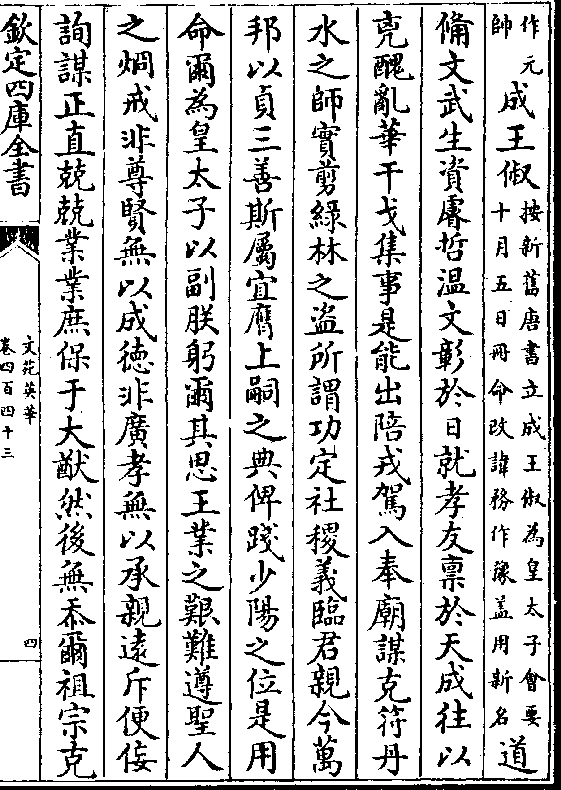 作元帥成王俶按新舊唐書立成王俶為皇太子會要十月五日冊命改諱務作豫盖用新名道
備文武生資睿哲温文彰於日就孝友稟於天成往以
兇醜亂華干戈集事是能出陪戎駕入奉廟謀克符丹
水之師實剪綠林之盗所謂功定社稷義臨君親今萬
邦以貞三善斯屬宜膺上嗣之典俾踐少陽之位是用
命爾為皇太子以副朕躬爾其思王業之艱難遵聖人
之炯戒非尊賢無以成徳非廣孝無以承親遠斥便佞
詢謀正直兢兢業業庶保于大猷然後無忝爾祖宗克
欽定四庫全書
文苑英華
卷四百四十三
四